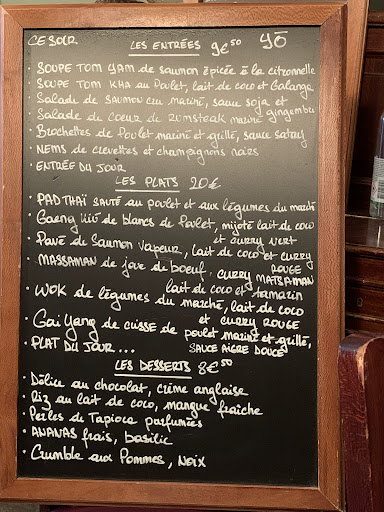 CE SOIR LES ENTRÉES 9€50 YÖ
• SOUPE TOM YAM de saumon épicée à la citronnelle
• SOUPE TOM KHA au Poulet, lait de coco et Galanga
• Salade de SAUMON cru mariné, sauce soja et
• Salade de coeur de rumsteak mariné gingembre
• Brochettes de Poulet mariné et grillé, sauce satay
• NEMS de crevettes et champignons noirs
• ENTRÉE DU JOUR
LES PLATS 20€
• PAD THAÏ SAUTÉ au poulet et aux légumes du marché
• Gaeng de blancs de Poulet, mijoté lait de coco
et CURRY VERT
• Pavé de Saumon vapeur, lait de coco et CURRY
ROUGE
• MASSAMAN de joue de boeuf. CURRY MATSAMAN
lait de coco et tamarin
• WOK de légumes du marché, lait de coco
et CURRY ROUGE
• Gai Yang de cuisse de poulet mariné et grillé,
• PLAT DU JOUR... SAUCE AIGRE DOUCE
LES DESSERTS 8€50
• Délice au chocolat, crème anglaise
• Riz au lait de coco, mangue fraîche
• Perles de Tapioca parfumées
• ANANAS frais, basilic
• Crumble aux Pommes, Noix